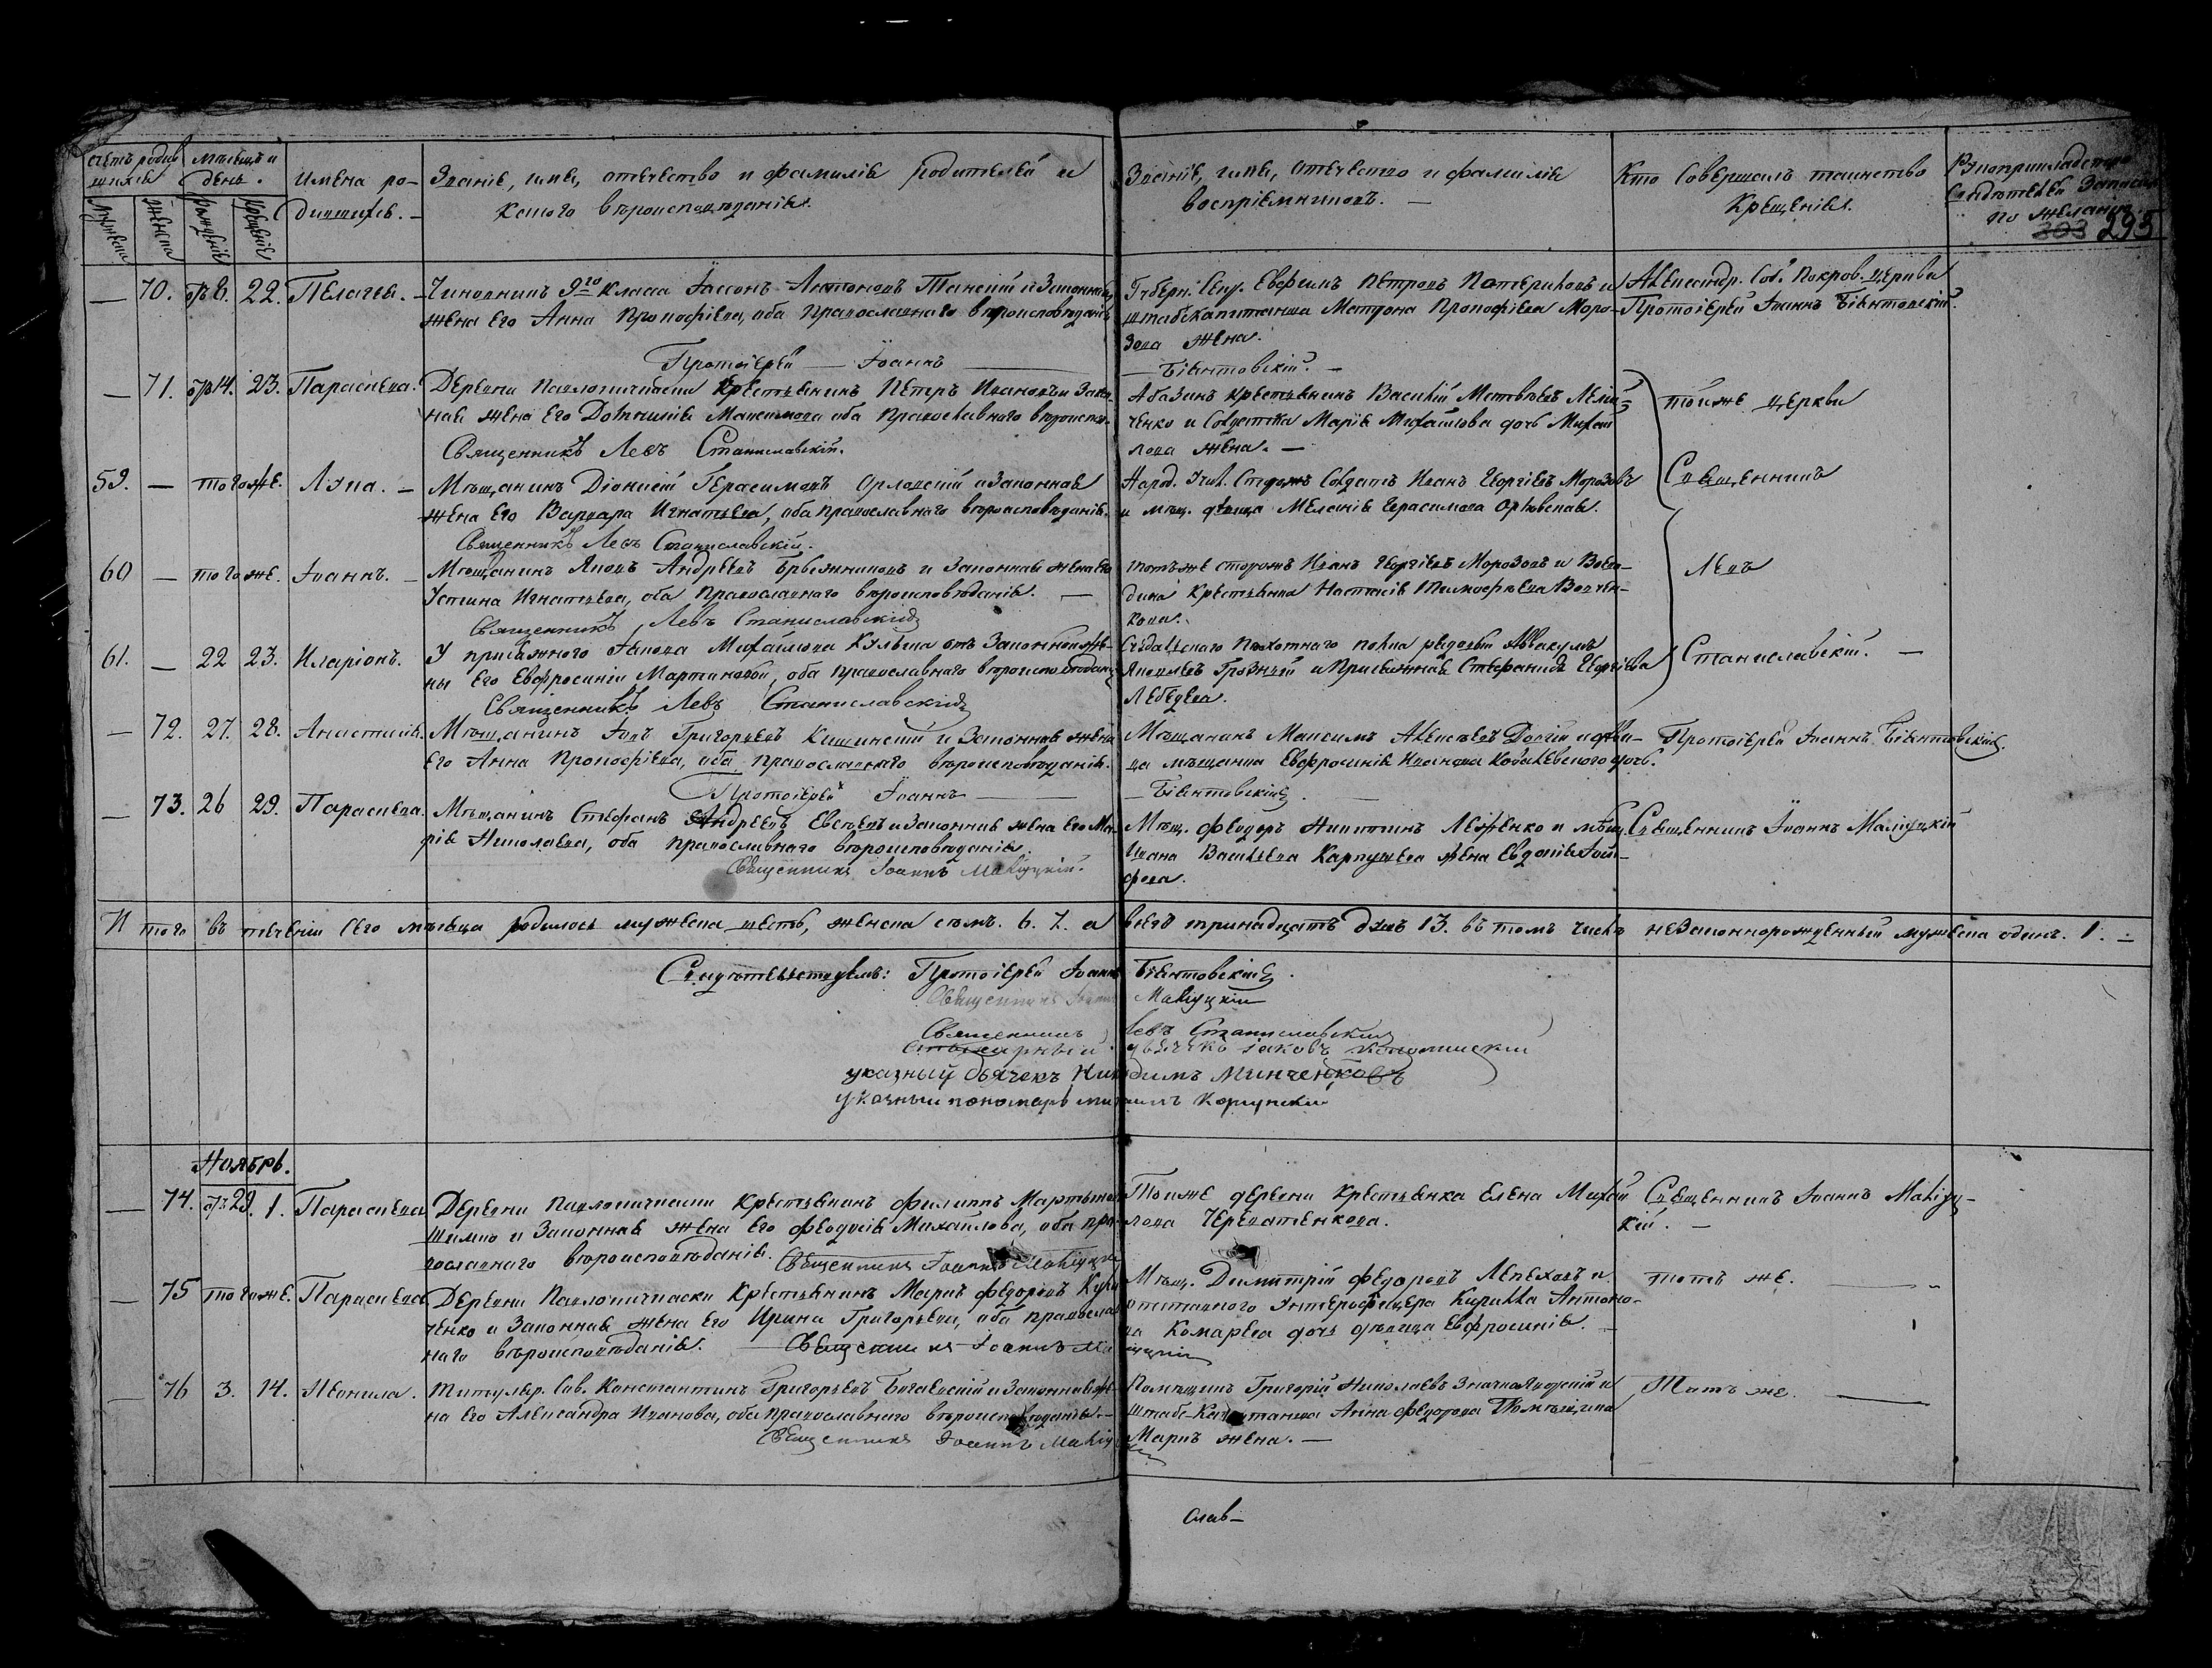 Счетъ родив
шихся
Мѣсяцъ и
день.
Имена ро-
дившихся.
Званіе, имя, отечество и фамилія родителей и
какого вѣроисповѣданія.
Званіе, имя, отечество и фамилія
воспріемниковъ. —
Кто совершалъ таинство
Крещенія.
Рукоприкладство
Свидѣтелей записи
по желанію
303 295
Мужеска
Женска
Рожденіе
Крещеніе
— 70. 8. 22. Пелагія. — Чиновникъ 9го класса Іассонъ Антоновъ и Законная
жена его Анна Прокофіева, оба Православнаго вѣроисповѣданія
Губерн. Секр. Евфимъ Петровъ и
штабскапитанша Матрона Прокофіева Моро-
зова жена.
Александр. Соб. Покров. церкви
Протоіерей Іоаннъ Біянтовскій.
Протоіерей — Іоаннъ — Біянтовскій. —
— 71. 14. 23. Параскева. Деревни Крестьянинъ Петръ Ивановъ и Закон-
ная жена его Домникія Максимова оба Православнаго вѣроиспов.
Священникъ Левъ Станиславскій.
крестьянинъ Василій Матвѣевъ
ченко и Солдатка Марія Михайлова дочь Михай
лова жена. —
тойже церкви
59. — тогоже. — Мѣщанинъ Діонисій Герасимовъ Орловскій и Законная
жена его Варвара Игнатьева, оба православнаго вѣроисповѣданія.
Священникъ Левъ Станиславскій.
Народ. Учил. Сторожъ Солдатъ Иванъ Георгіевъ Морозовъ
и мѣщ. дѣвица Меланія Герасимова Орловская.
Священникъ
60 — тогоже. Іоаннъ. — Мѣщанинъ Яковъ Андреевъ и Законная жена его
Устина Игнатьева, оба Православнаго вѣроисповѣданія. —
Священникъ Левъ Станиславскій
тотъже сторожъ Иванъ Георгіевъ Морозовъ и
Крестьянка Настасія
кова.
Левъ
61. — 22 23. Иларіонъ. У присяжнаго Михайлова отъ Законной же-
ны его Евфросиніи Мартиновой, оба православнаго вѣроисповѣдан
Священникъ Левъ Станиславскій
Суздальскаго Пѣхотнаго полка рядовый Аввакумъ
Яковлевъ и Присяжная Стефанида Георгіева
Лебедева.
Станиславскій. —
— 72. 27. 28. Анастасія. Мѣщанинъ Іовъ Григорьевъ и Законная жена
его Анна Прокофіева, оба православнаго вѣроисповѣданія.
Протоіерей Іоаннъ — Біянтовскій.
Мѣщанинъ Максимъ Алексѣевъ и дѣви-
ца мѣщанка Евфросинія Иванова Ковалевскаго дочь.
Протоіерей Іоаннъ Біянтовскій.
— 73. 26 29. Параскева. Мѣщанинъ Стефанъ Андреевъ Евсѣевъ и Законная жена его Ма-
рія Николаева, оба православнаго вѣроисповѣданія.
Священникъ Іоаннъ Малѣуцкій.
Мѣщ. Феодоръ Никитинъ и мѣщ.
Ивана Васильева Карпушева жена Евдокія Іоси-
фова.
Священникъ Іоаннъ Малѣуцкій
Итого въ теченіи сего мѣсяца родилось мужеска шесть, женска семь. 6. 7. а всего тринадцать душъ 13. въ томъ числѣ незаконнорожденный мужеска одинъ. 1. —
Свидѣтельствуемъ: Протоіерей Іоаннъ Біянтовскій.
Священникъ Іоаннъ Малѣуцкій
Священникъ Левъ Станиславскій
Стихарный Іаковъ
указный дьячекъ Никодимъ Минченковъ
указный пономарь
Ноябрь.
— 74. 29. 1. Параскева Деревни Крестьянинъ Филиппъ Мартынов
и Законная жена его Феодосія Михайлова, оба пра-
вославнаго вѣроисповѣданія. Священникъ Іоаннъ Малѣуцкій
Тойже деревни Крестьянка Елена Михай
лова
Священникъ Іоаннъ Малѣуц-
кій. —
— 75 тогоже. Параскева Деревни Крестьянинъ Маркъ Федоровъ
ченко и Законная жена его Ирина Григорьева, оба православ
наго вѣроисповѣданія. Священникъ Іоаннъ Малѣуцкій
Мѣщ. Димитрій Федоровъ Лепеховъ и
отставного Унтерофицера Кирилла Антоно-
ва Комарева дочь дѣвица Евфросинія. —
тотъ же.
— 76 3. 14. Неонила. Титуляр. Сов. Константинъ Григорьевъ Богаевскій и Законная же-
на его Александра Иванова, оба православнаго вѣроисповѣданія. —
Священникъ Іоаннъ Малѣуцкій
Помѣщикъ Григорій Николаевъ и
Штабс-Капитанша Анна Федорова
Маркъ жена. —
Тотъ же.
слав-